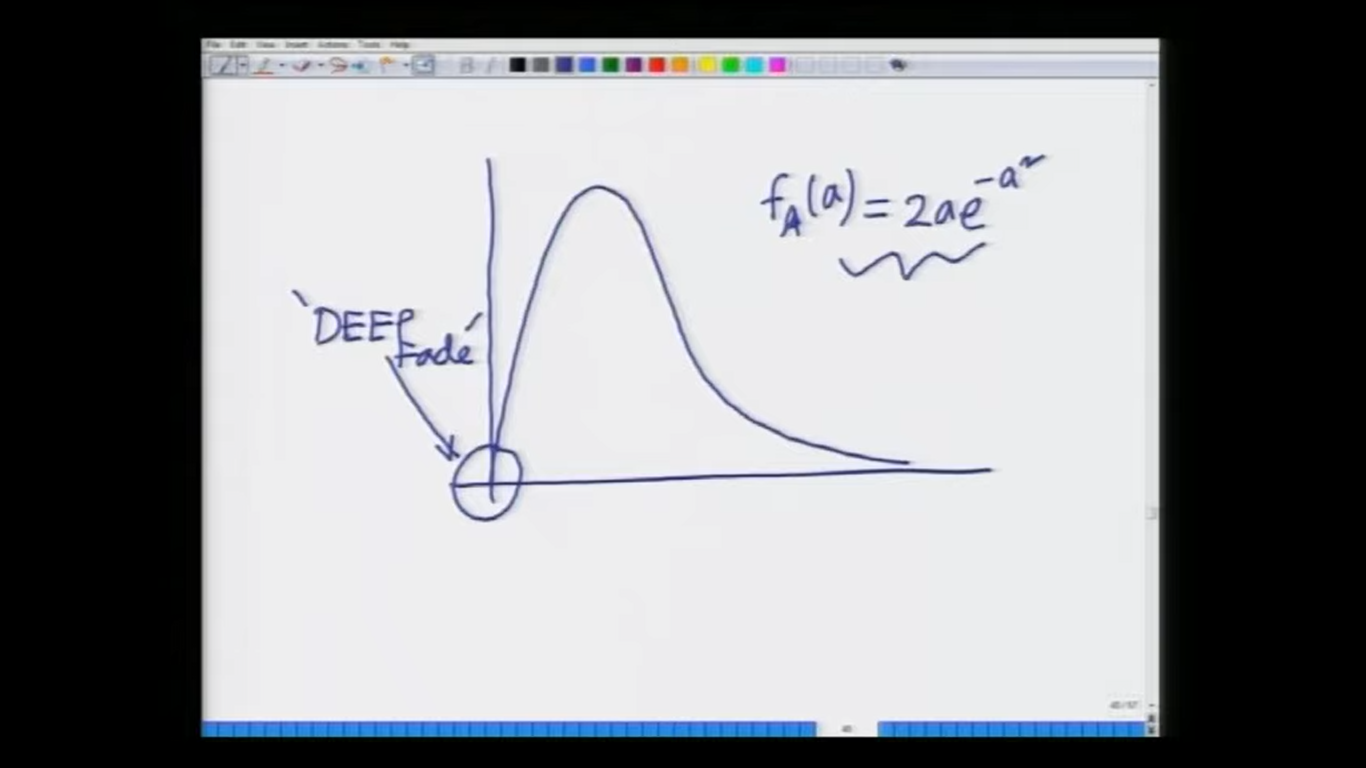 File Edit View Insert Actions Tools Help
f_A(a) = 2ae^{-a²}
'DEEP
Fade'